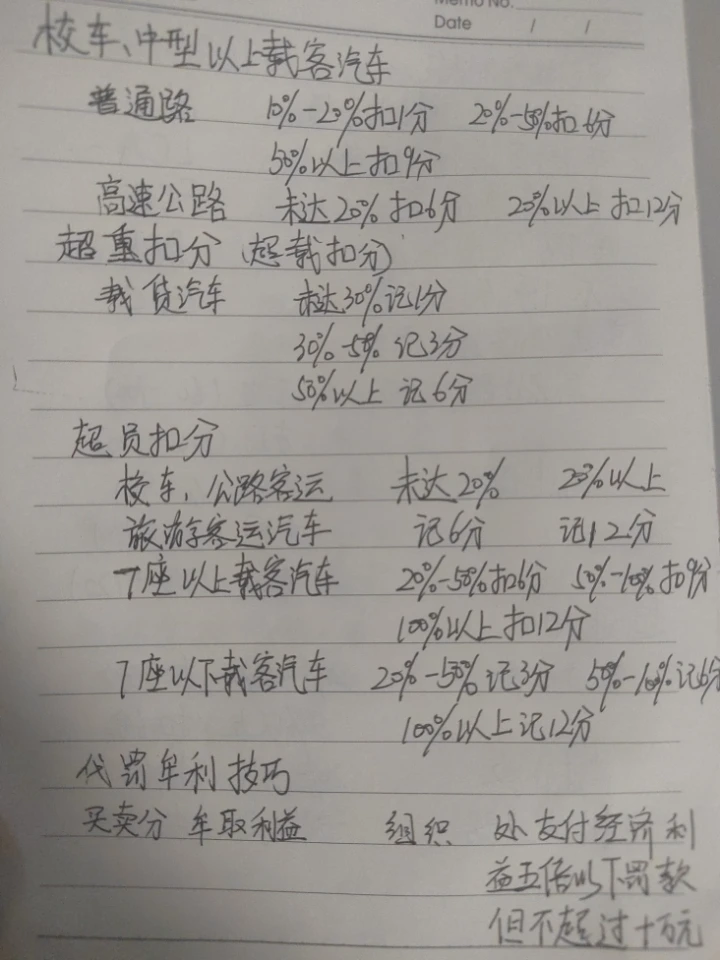 Memo No.
Date / /
校车、中型以上载客汽车
普通路 10%-20%扣1分 20%-50%扣6分
50%以上扣9分
高速公路 未达20%扣6分 20%以上扣12分
超重扣分(超载扣分)
载货汽车 未达30%记1分
30%-50% 记3分
50%以上 记6分
超员扣分
校车、公路客运 未达20% 20%以上
旅游客运汽车 记6分 记12分
7座以上载客汽车 20%-50%扣6分 50%-100%扣9分
100%以上扣12分
7座以下载客汽车 20%-50%记3分 50%-100%记6分
100%以上记12分
代罚牟利技巧
买卖分 牟取利益 组织 处支付经济利
益五倍以下罚款
但不超过十万元